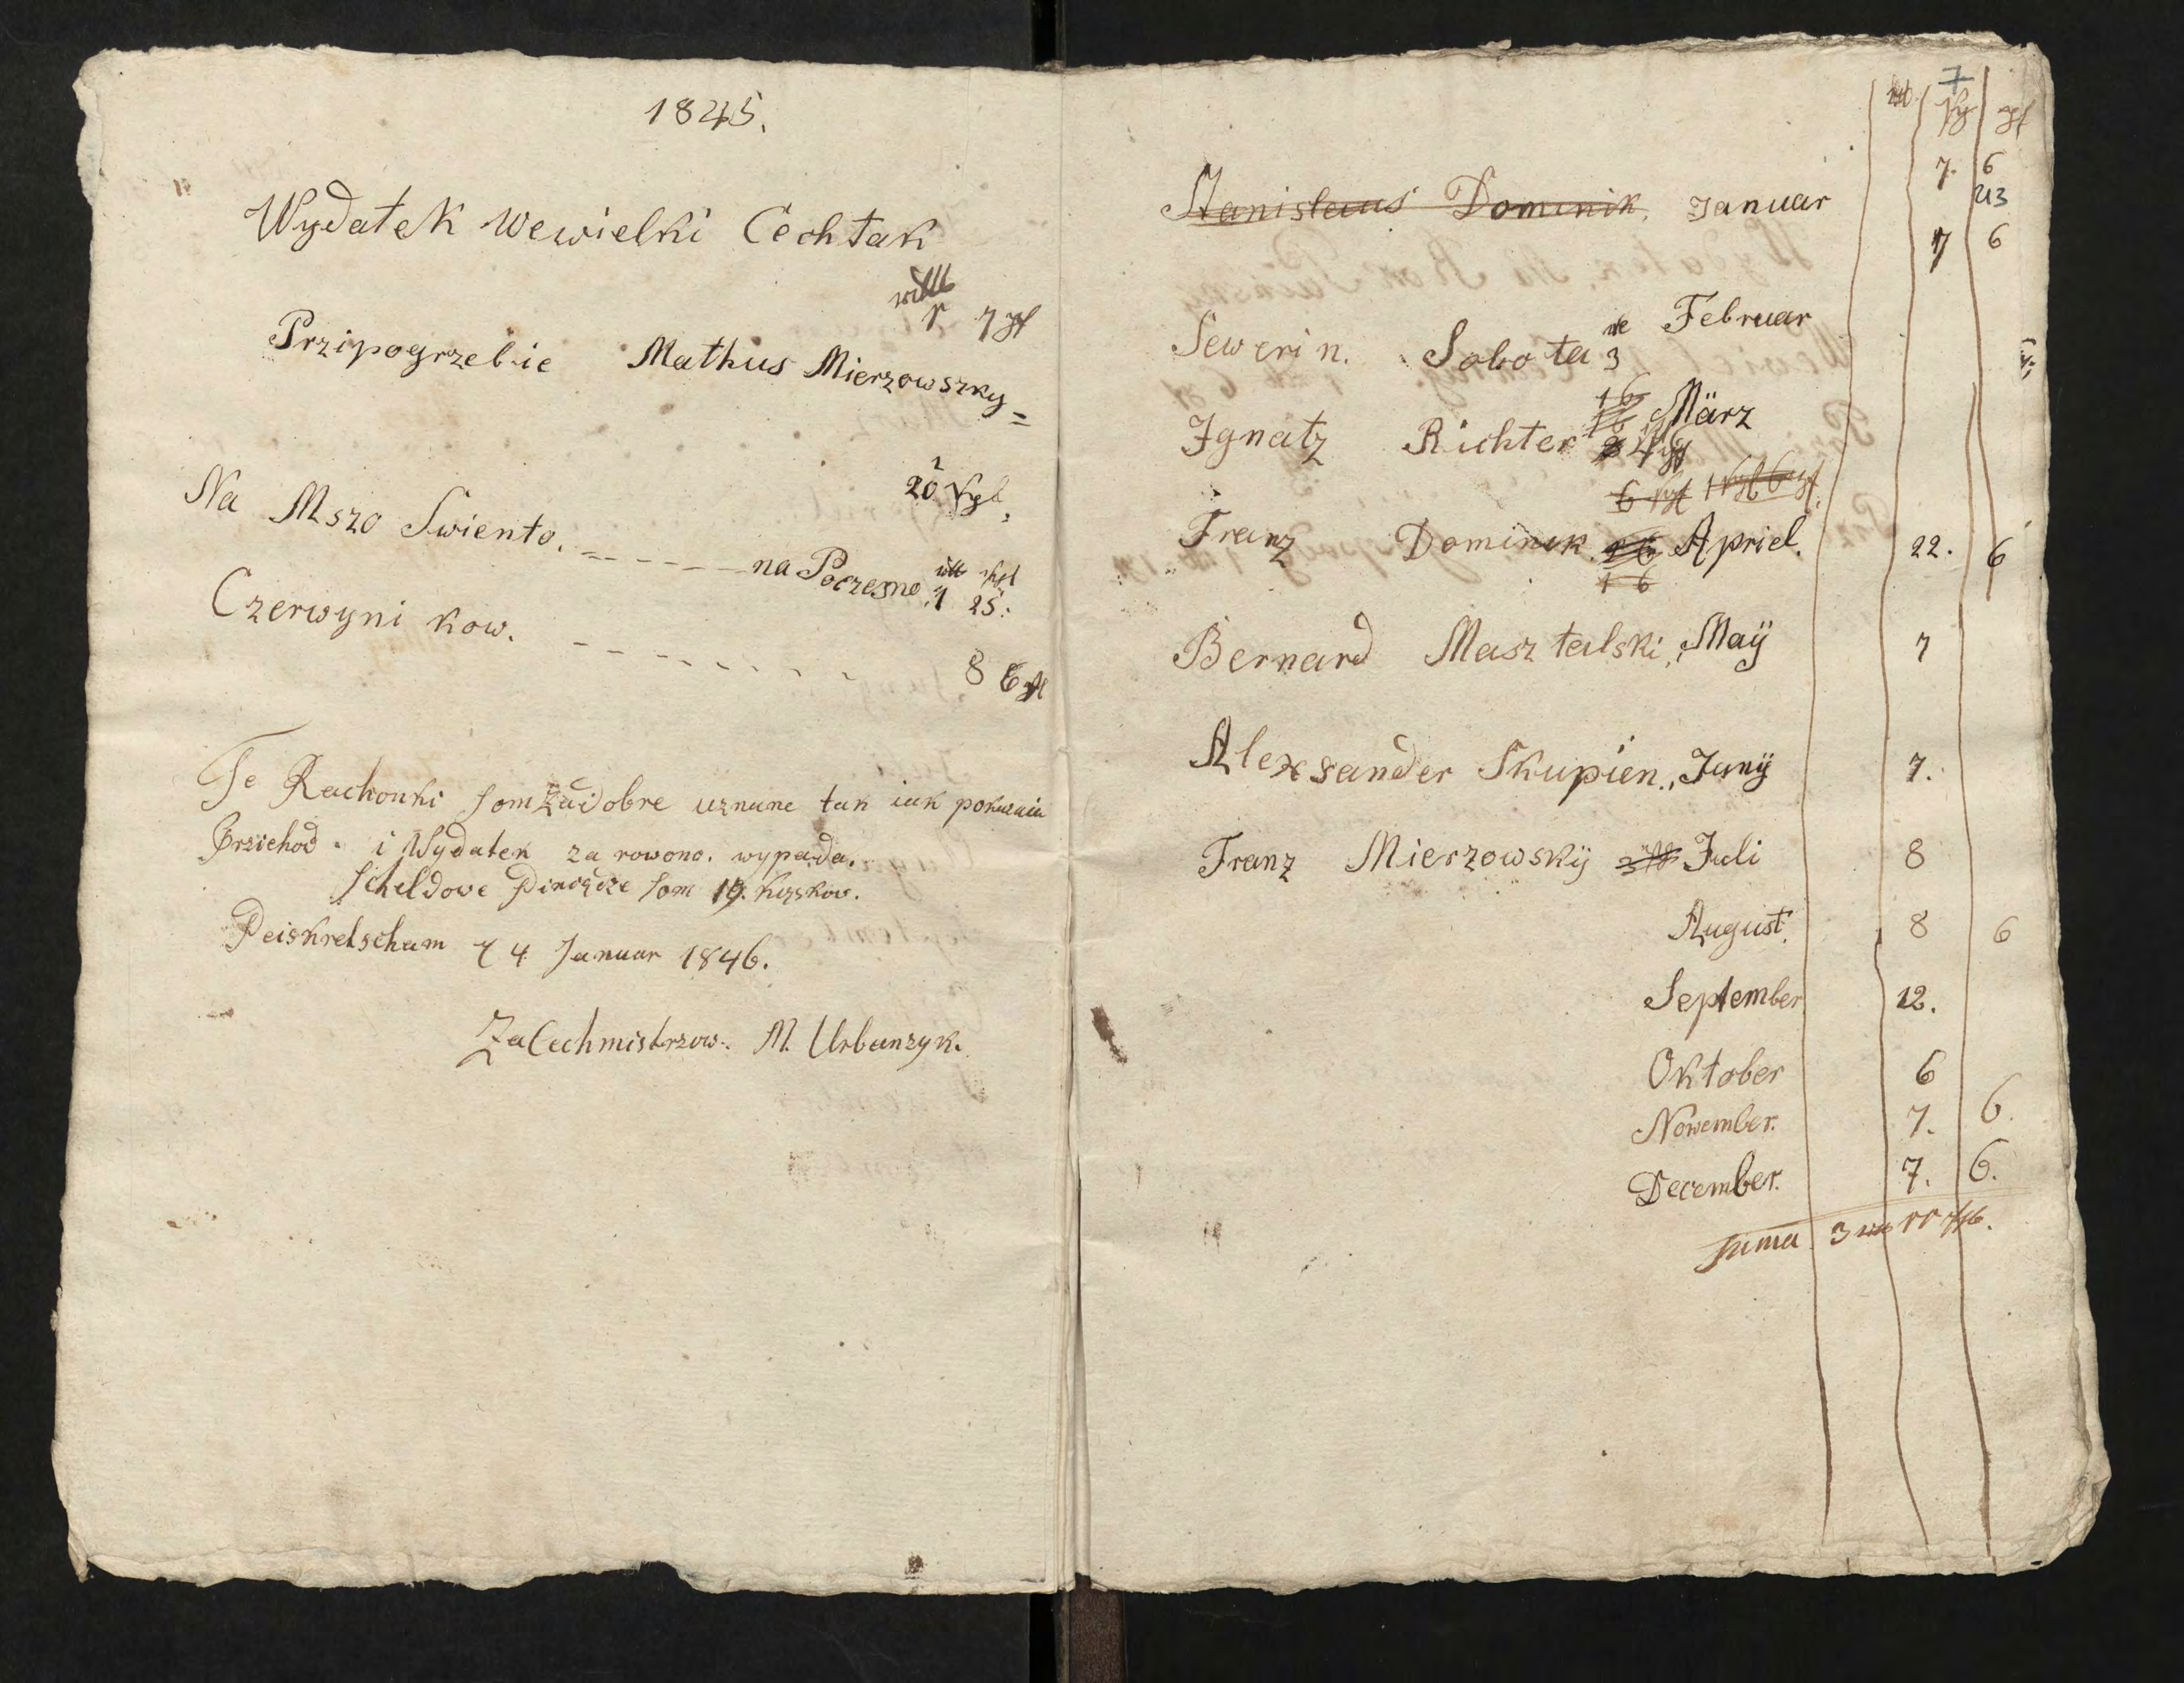 1845.
Wydatek wewielki Cechtak
7
Przipogrzebie Mathus Mierzowszky =
20
Na Mszo Swiento. - - - - - na Poczesne 1 25.
Czerwyni kow. - - - - - - - 8 6
Te Rachonki som Zaidobre uznane tak iak pokazaia
Przichod. i Wydatek za rowono. wypada.
Scheldowe Piniądze som 19.
Peiskretscham 4 Januar 1846.
Za Cechmistrzow. M. Urbanzyk.
7
7. 6
Stanislaus Dominik, Januar
7 6
Sewerin. Sobota 3 Februar
Ignatz Richter März
Franz Dominik Apriel. 22. 6
Bernard Masztalski, Maÿ 7
Alexsander Skupien., Junÿ 7.
Franz Mierzowskÿ Juli 8
August. 8 6
September 12.
Oktober 6
Nowember. 7. 6.
December. 7. 6.
Suma 3